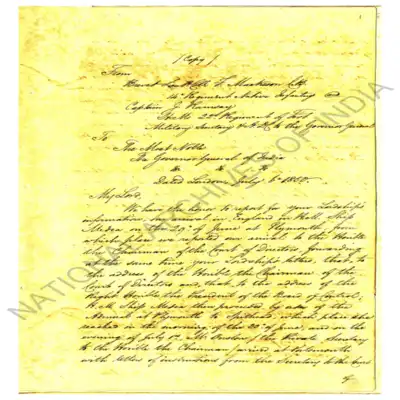 (Copy)
From
Brevet Lieut. Col. F. Mackeson C.B.
14th Regiment Native Infantry and
Captain J. Ramsay
22nd Regiment of Foot
Military Secretary & A.D.C. to the Governor General
To
The Most Noble
The Governor General of India
&c &c &c
Dated London July 6 1850
My Lord,
We have the honor to report for your Lordship's
information, our arrival in England in H.M. Ship
Medea on the 29th of June at Plymouth, from
which place we reported our arrival to the Hon'ble
the Chairman of the Court of Directors, forwarding
at the same time your Lordship's letters, that to
the address of the Hon'ble the Chairman of the
Court of Directors and that to the address of the
Right Hon'ble the President of the Board of Control.
H.M. Ship Medea then proceeded by order of the
Admiral at Plymouth to Spithead, which place she
reached in the morning of the of June, and on the
evening of July Mr. the Private Secretary
to the Hon'ble the Chairman arrived at Portsmouth
with letters of instructions from the Secretary to the
of
NATIONAL ARCHIVES OF INDIA